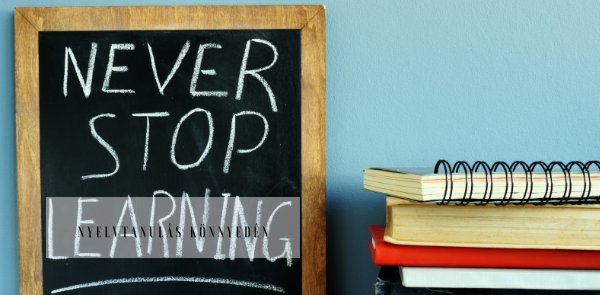 NEVER
STOP
LEARNING
NYELVTANULÁS KÖNNYEDÉN